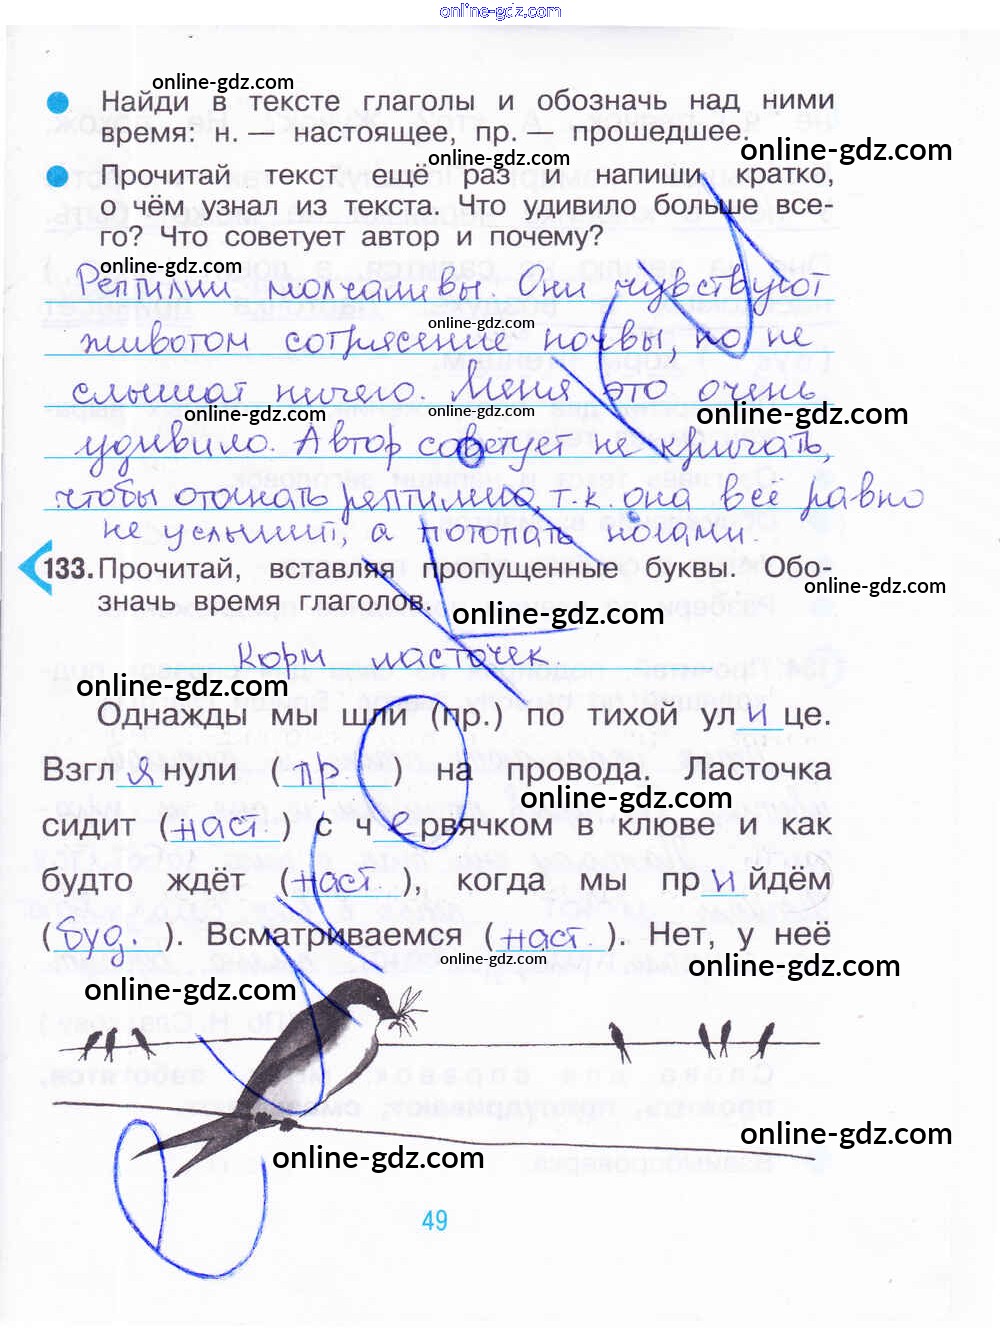 online-gdz.com
online-gdz.com
Найди в тексте глаголы и обозначь над ними
время: н. — настоящее, пр. — прошедшее.
online-gdz.com
online-gdz.com
Прочитай текст ещё раз и напиши кратко,
о чём узнал из текста. Что удивило больше все-
го? Что советует автор и почему?
online-gdz.com
Рептилии молчаливы. Они чувствуют
online-gdz.com
животом сотрясение почвы, но не
слышат ничего. Меня это очень
online-gdz.com
online-gdz.com
online-gdz.com
удивило. Автор советует не кричать,
чтобы отогнать рептилию, т.к. она все равно
не услышит, а потопать ногами.
133. Прочитай, вставляя пропущенные буквы. Обо-
значь время глаголов.
online-gdz.com
online-gdz.com
Корм ласточек
online-gdz.com
Однажды мы шли (пр.) по тихой ул и це.
Взгл я нули ( пр ) на провода. Ласточка
online-gdz.com
сидит ( наст. ) с ч е рвячком в клюве и как
будто ждёт ( наст ), когда мы пр и йдём
( буд. ). Всматриваемся ( наст. ). Нет, у неё
online-gdz.com
online-gdz.com
online-gdz.com
online-gdz.com
online-gdz.com
49